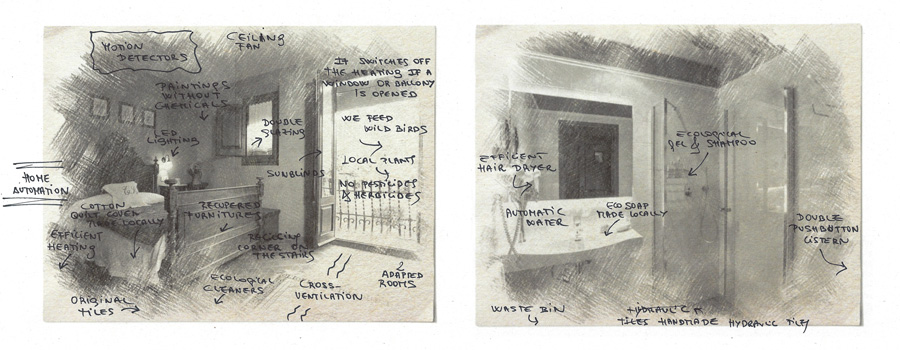 MOTION
DETECTORS
CEILING
FAN
IT SWITCHES OFF
THE HEATING IF A
WINDOW OR BALCONY
IS OPENED
PAINTINGS
WITHOUT
CHEMICALS
LED
LIGHTING
DOUBLE
GLAZING
WE FEED
WILD BIRDS
SUNBLINDS
LOCAL PLANTS
NO PESTICIDES
& HERBICIDES
HOME
AUTOMATION
COTTON
QUILT COVER
MADE LOCALLY
RECUPERED
FURNITURES
EFFICIENT
HEATING
CORNER ON
THE STAIRS
ECOLOGICAL
CLEANERS
CROSS-
VENTILATION
2
ADAPTED
ROOMS
ORIGINAL
TILES
ECOLOGICAL
GEL & SHAMPOO
EFFICENT
HAIR DRYER
AUTOMATIC
WATER
ECO SOAP
MADE LOCALLY
DOUBLE
PUSHBUTTON
CISTERN
WASTE BIN
TILES HANDMADE HYDRAULIC TILES